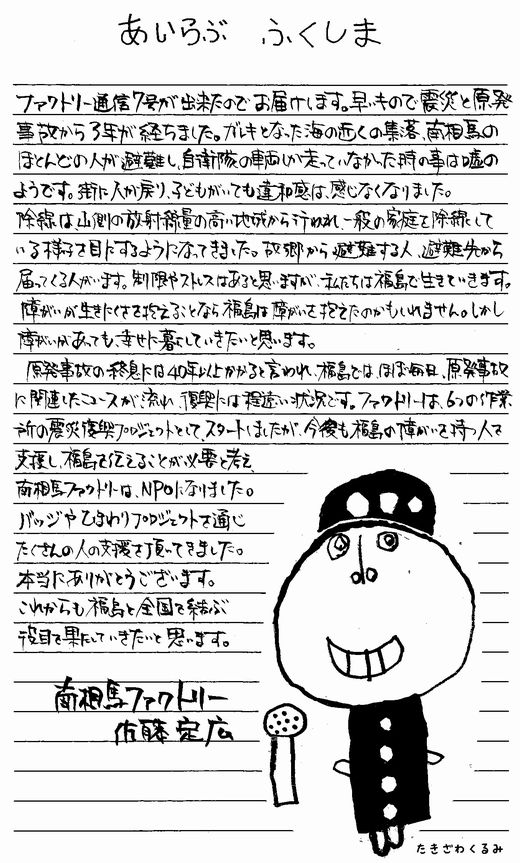 あいらぶ ふくしま
ファクトリー通信7号が出来たのでお届けします。早いもので震災と原発
事故から3年が経ちました。ガレキとなった海の近くの集落、南相馬の
ほとんどの人が避難し、自衛隊の車両しか走っていなかった時の事は嘘の
ようです。街に人が戻り、子どもがいても違和感は、感じなくなりました。
除線は、山側の放射線量の高い地域から行われ、一般の家庭を除線して
いる様子を目にするようになってきました。故郷から避難する人、避難先から
届ってくる人がいます。制限やストレスはあると思いますが、私たちは福島で生きていきます。
障がいが生きにくさを抱えることなら福島は障がいを抱えたのかもしれません。しかし
障がいがあっても、幸せに暮していきたいと思います。
原発事故の終息には40年以上かかると言われ、福島では、ほぼ毎日、原発事故
に関連したニュースが流れ、復興には程遠い状況です。ファクトリーは、6つの作業
所の震災復興プロジェクトとして、スタートしましたが、今後も福島の障がいを持つ人を
支援し、福島を伝えることが必要と考え、
南相馬ファクトリーは、NPOになりました。
バッジやひまわりプロジェクトを通じ
たくさんの人の支援を頂ってきました。
本当にありがとうございます。
これからも福島と全国を結ぶ
役目を果たしていきたいと思います。
南相馬ファクトリー
佐藤定広
たきざわくるみ